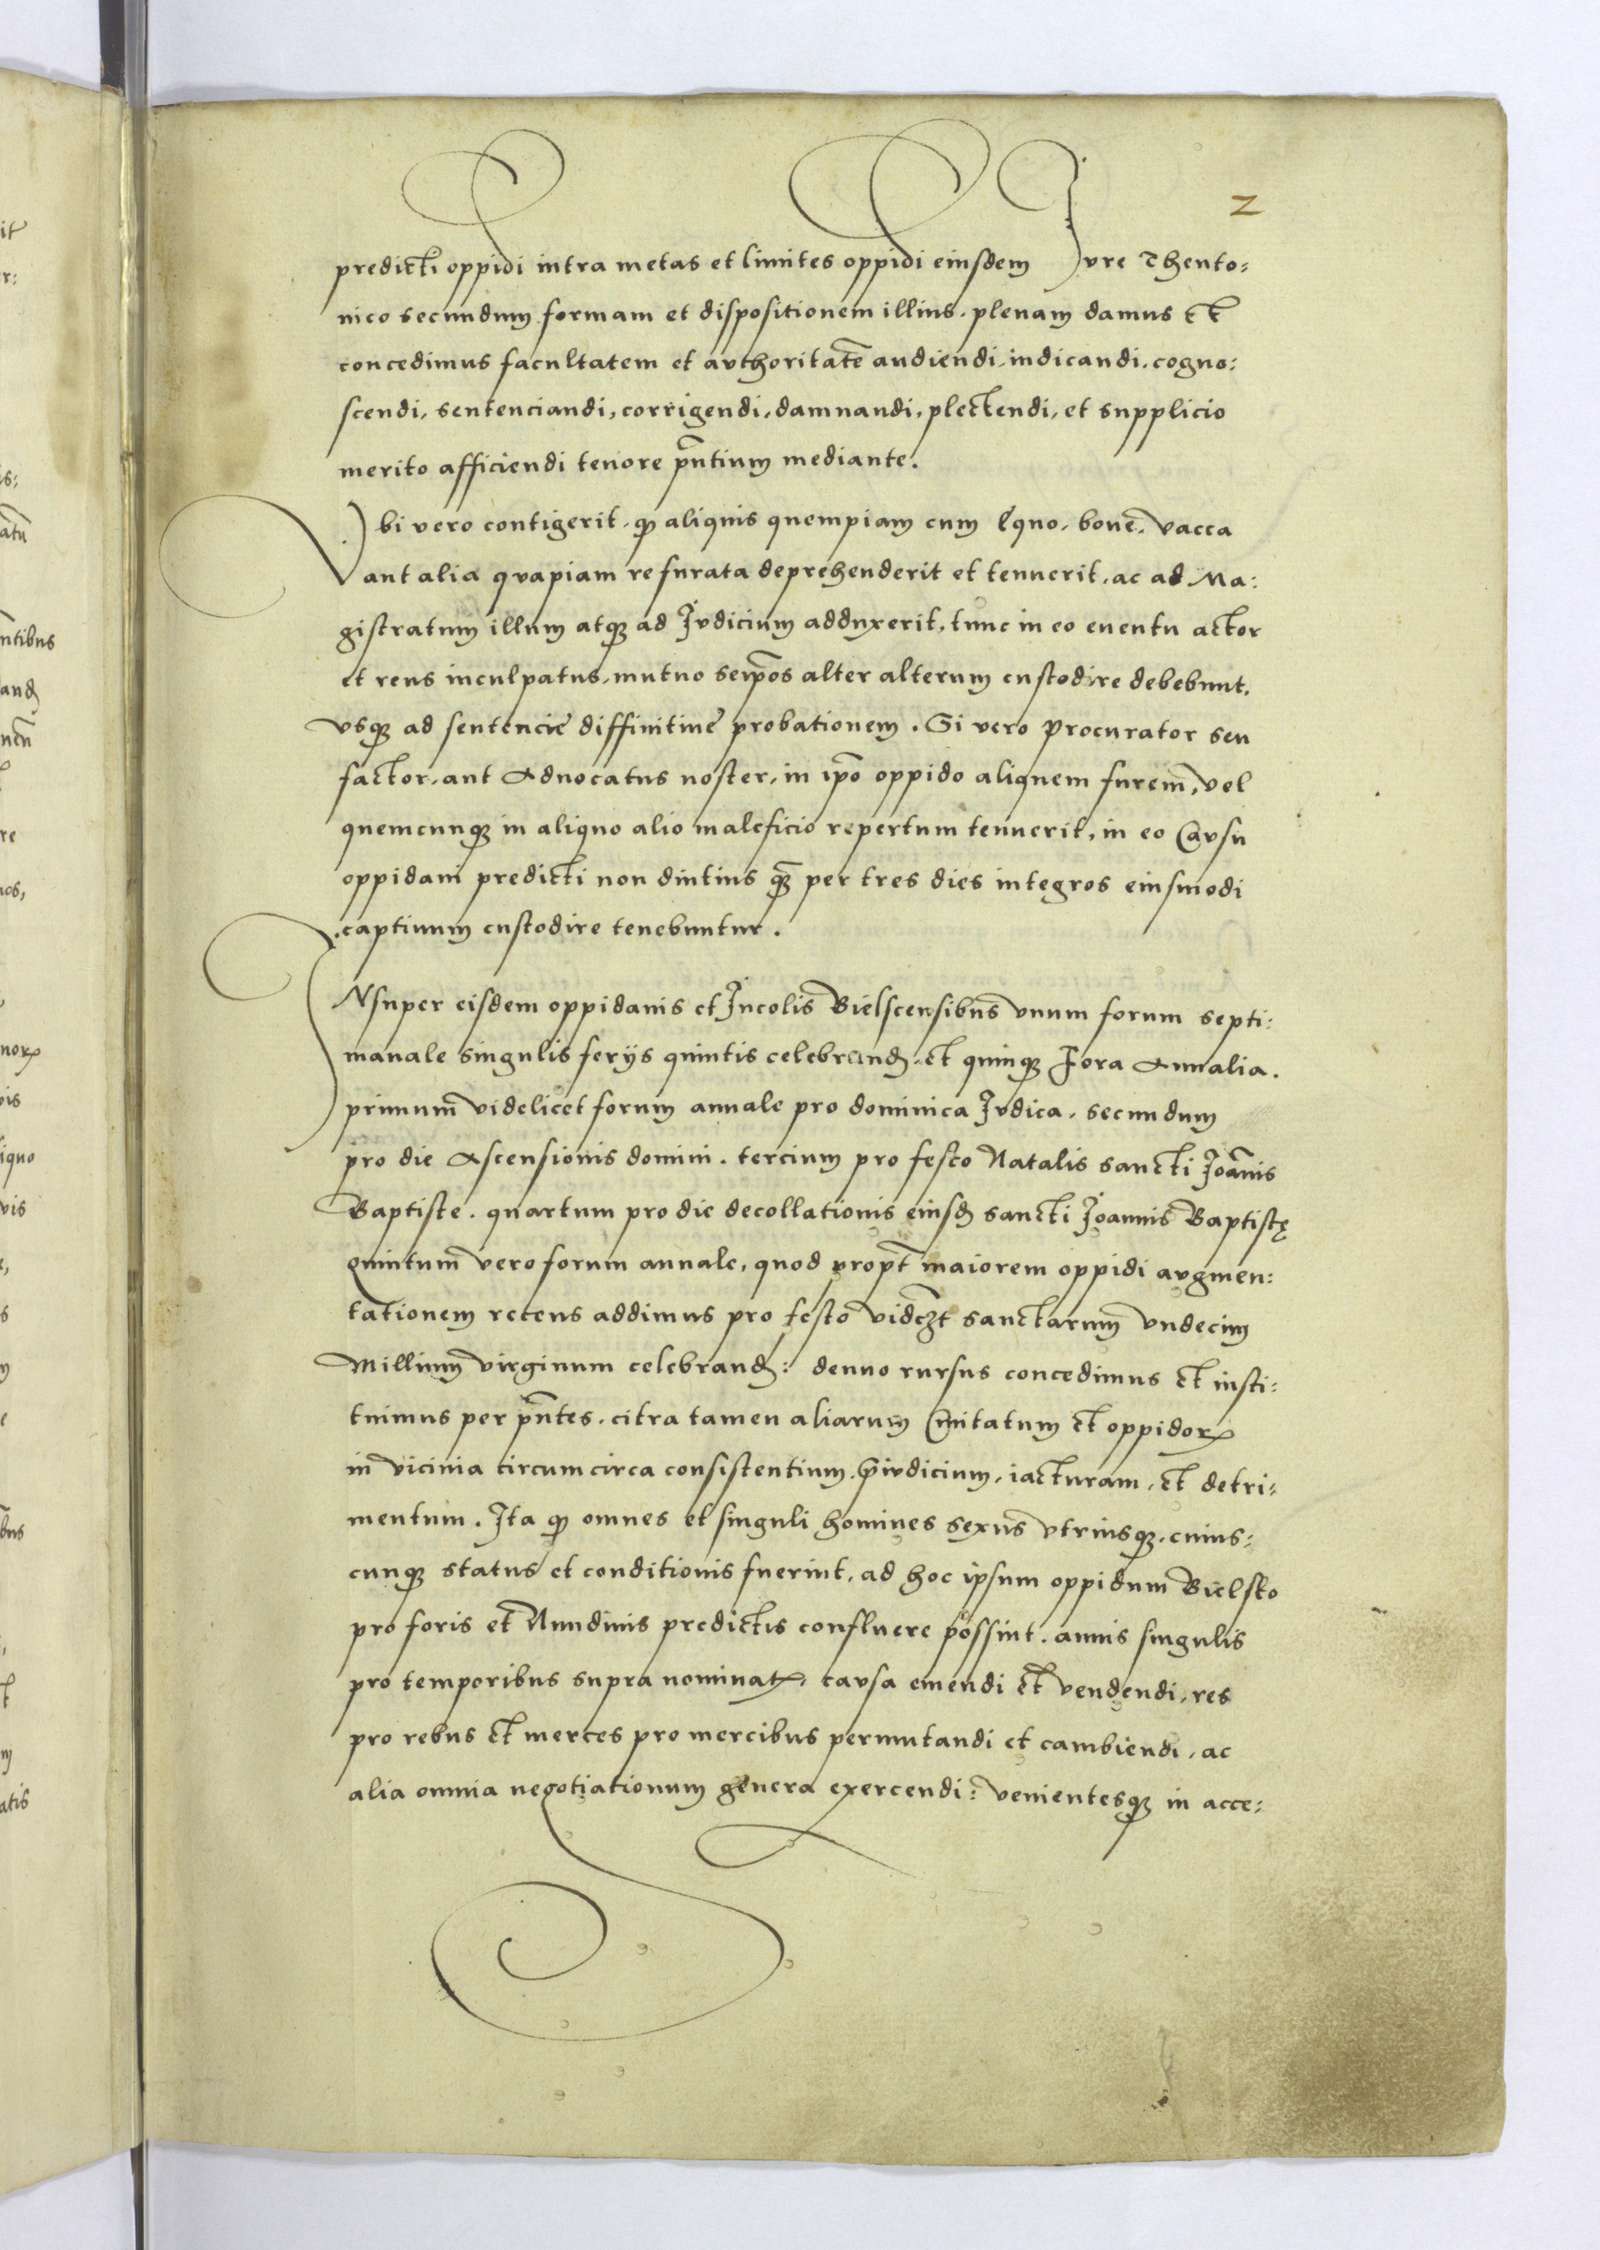 2
predicti oppidi intra metas et limites oppidi eiusdem Jure Theuto:
nico secundum formam et dispositionem illius. plenam damus et
concedimus facultatem et authoritatē audiendi, iudicandi, cogno:
scendi, sentenciandi, corrigendi, damnandi, plectendi, et supplicio
merito afficiendi tenore pn̄tium mediante.
Vbi vero contigerit, ꝙ aliquis quempiam cum equo, boue, vacca
aut alia quapiam re furata deprehenderit et tenuerit, ac ad Ma:
gistratum illum atqꝫ ad Judicium adduxerit, tunc in eo euentu actor
et reus inculpatus, mutuo seip̄os alter alterum custodire debebunt,
vsqꝫ ad sentencie diffinitiue probationem. Si vero procurator seu
factor, aut Aduocatus noster, in ip̄o oppido aliquem furem, vel
quemcunqꝫ in aliquo alio maleficio repertum tenuerit, in eo Causu
oppidani predicti non diutius qꝫ̄ per tres dies integros eiusmodi
captiuum custodire tenebuntur.
INsuper eisdem oppidanis et Incolis Bielscensibus vnum forum septi:
manale singulis ferijs quintis celebrand, et quinqꝫ Fora Annalia.
primum videlicet forum annale pro dominica Judica, secundum
pro die Ascensionis domini. tercium pro festo Natalis sancti Joānis
Baptiste. quartum pro die decollationis eiusd sancti Joannis Baptistę
quintum vero forum annale, quod propt̄ maiorem oppidi augmen:
tationem recens addimus pro festo videꝫt sanctarum vndecim
Millium virginum celebrand: denuo rursus concedimus et insti:
tuimus per pn̄tes. citra tamen aliarum Ciuitatum et oppidoꝝ
in vicinia circumcirca consistentium, p̄iudicium, iacturam, et detri:
mentum. Ita ꝙ omnes et singuli homines sexus vtriusqꝫ, cuius:
cunqꝫ status et conditionis fuerint, ad hoc ipsum oppidum Bielsko
pro foris et Nundinis predictis confluere possint. annis singulis
pro temporibus supra nominatꝭ, causa emendi et vendendi, res
pro rebus et merces pro mercibus permutandi et cambiendi, ac
alia omnia negotiationum genera exercendi: venientesqꝫ in acce: